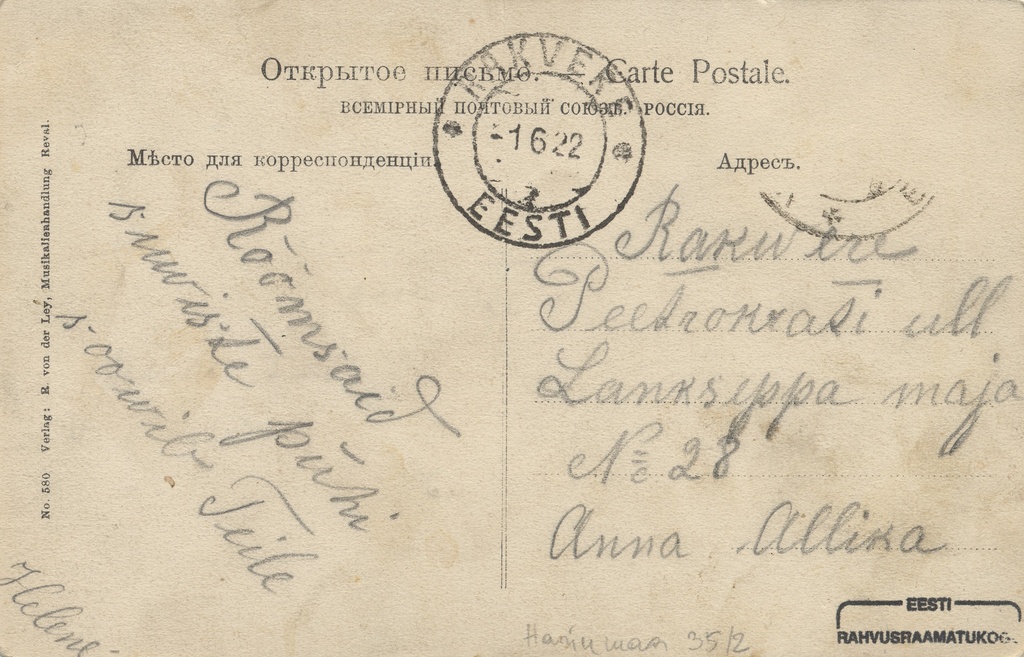 Открытое письмо. Carte Postale.
ВСЕМІРНЫЙ ПОЧТОВЫЙ СОЮЗЪ. РОССІЯ.
Мѣсто для корреспонденціи.
Адресъ.
RAKVERE
-1 6 22
EESTI
No. 580 Verlag: R. von der Ley, Musikalienhandlung Reval.
Rõõmsaid
suwiste pühi
soowib Teile
Helene
Rakwere
Peetrokrati ull
Lankseppa maja
No 28
Anna Allika
35/2
EESTI
RAHVUSRAAMATUKOG